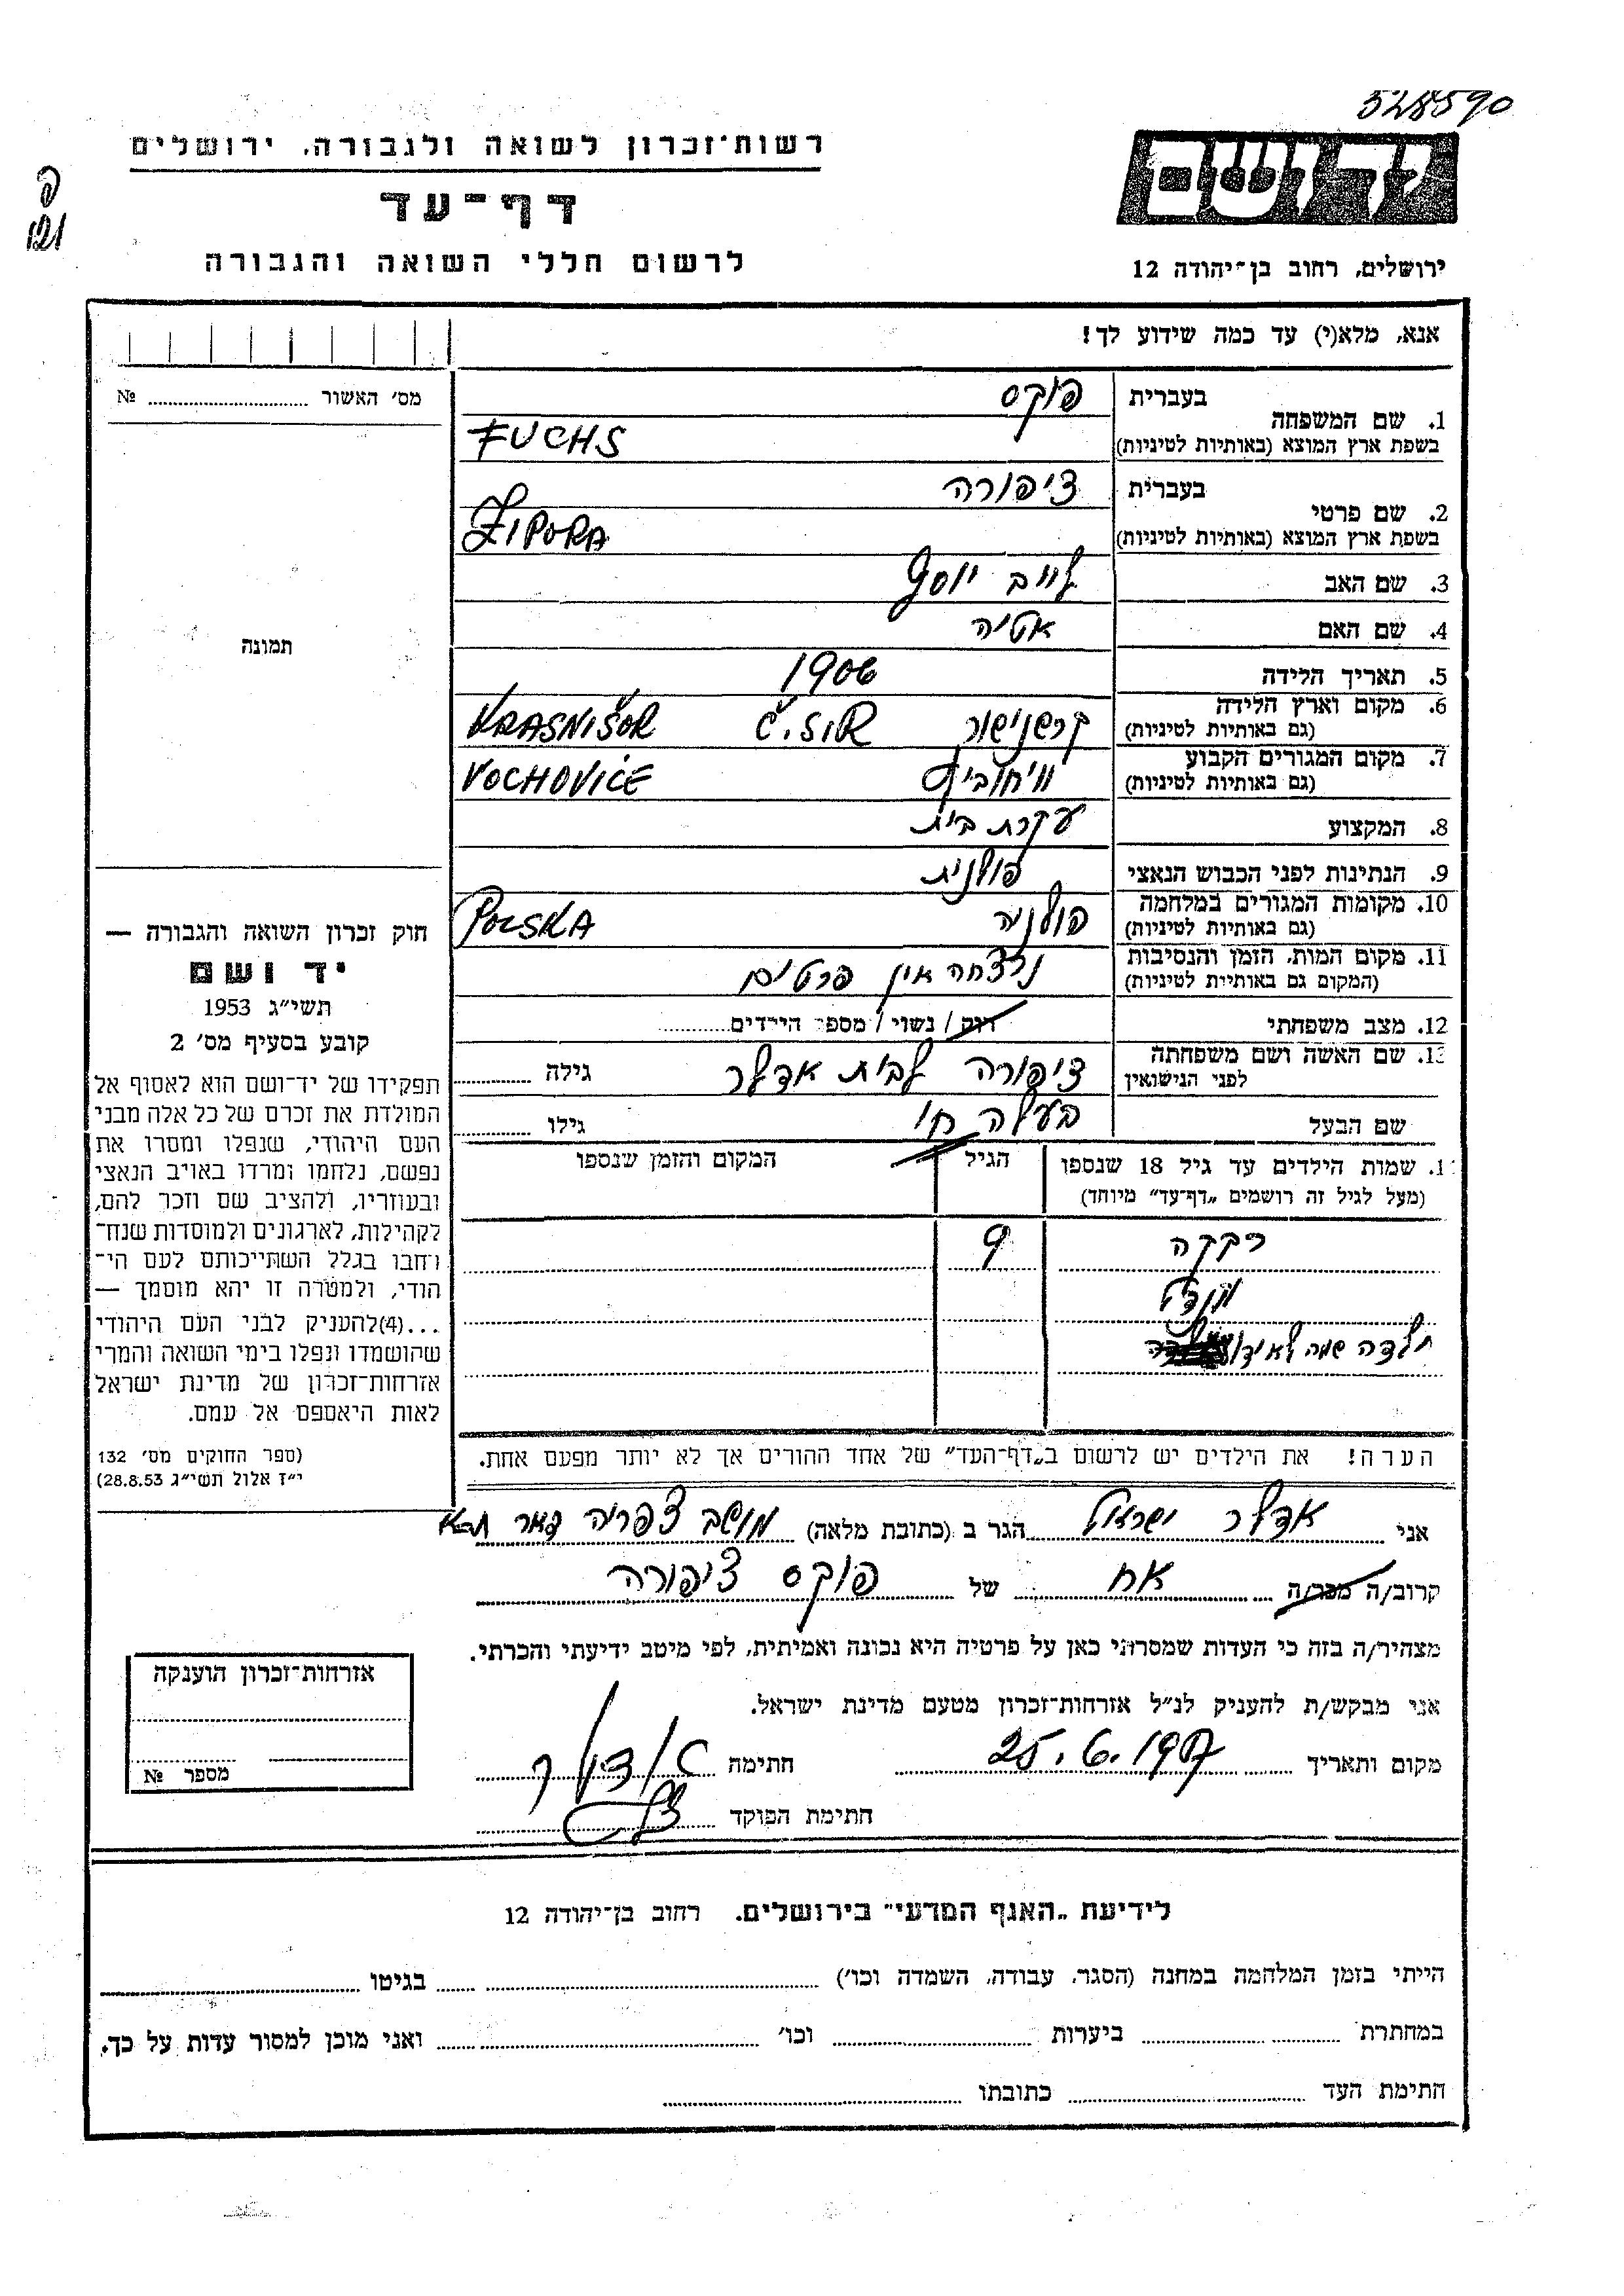 528590
רשות־זכרון לשואה ולגבורה, ירושלים
דף־עד
לרשום חללי השואה והגבורה
יד ושם
ירושלים, רחוב בן־יהודה 12
פ
אנא, מלא(י) עד כמה שידוע לך!
מס׳ האשור № 
1. שם המשפחה בעברית פוקס
בשפת ארץ המוצא (באותיות לטיניות) FUCHS
2. שם פרטי בעברית ציפורה
בשפת ארץ המוצא (באותיות לטיניות) ZIPORA
3. שם האב לייב יוסף
4. שם האם אטיה
5. תאריך הלידה 1906
6. מקום וארץ הלידה (גם באותיות לטיניות) קרשנישור Č.S.R KRASNIŠOR
7. מקום המגורים הקבוע (גם באותיות לטיניות) VOCHOVICE
8. המקצוע עקרת בית
9. הנתינות לפני הכבוש הנאצי פולנית
10. מקומות המגורים במלחמה (גם באותיות לטיניות) פולניה POLSKA
11. מקום המות, הזמן והנסיבות (המקום גם באותיות לטיניות) נרצחה אין פרטים
12. מצב משפחתי רווק / נשוי / מספר הילדים
13. שם האשה ושם משפחתה לפני הנישואין ציפורה לבית אדלר גילה
שם הבעל בעלה חי גילו
שמות הילדים עד גיל 18 שנספו (מעל לגיל זה רושמים „דף־עד״ מיוחד) הגיל המקום והזמן שנספו
רבקה 9
ילדה שמה לא
הערה! את הילדים יש לרשום ב„דף־העד״ של אחד ההורים אך לא יותר מפעם אחת.
תמונה
חוק זכרון השואה והגבורה —
יד ושם
תשי״ג 1953
קובע בסעיף מס׳ 2
תפקידו של יד־ושם הוא לאסוף אל
המולדת את זכרם של כל אלה מבני
העם היהודי, שנפלו ומסרו את
נפשם, נלחמו ומרדו באויב הנאצי
ובעוזריו, ולהציב שם וזכר להם,
לקהילות, לארגונים ולמוסדות שנח־
רחבו בגלל השתייכותם לעם הי־
הודי, ולמטרה זו יהא מוסמך —
...(4)להעניק לבני העם היהודי
שהושמדו ונפלו בימי השואה והמרי
אזרחות־זכרון של מדינת ישראל
לאות היאספם אל עמם.
(ספר החוקים מס׳ 132
י״ז אלול תשי״ג 28.8.53)
אני אדלר ישראל הגר ב (כתובת מלאה) מושב צפריה דאר ת״א
קרוב/ה מכר/ה אח של פוקס ציפורה
מצהיר/ה בזה כי העדות שמסרתי כאן על פרטיה היא נכונה ואמיתית, לפי מיטב ידיעתי והכרתי.
אני מבקש/ת להעניק לנ״ל אזרחות־זכרון מטעם מדינת ישראל.
מקום ותאריך חתימה אדלר
חתימת הפוקד
אזרחות־זכרון הוענקה
מספר №
לידיעת „האגף המדעי״ בירושלים, רחוב בן־יהודה 12
הייתי בזמן המלחמה במחנה (הסגר, עבודה, השמדה וכו׳) בגיטו
במחתרת ביערות וכו׳ ואני מוכן למסור עדות על כך.
חתימת העד כתובתו